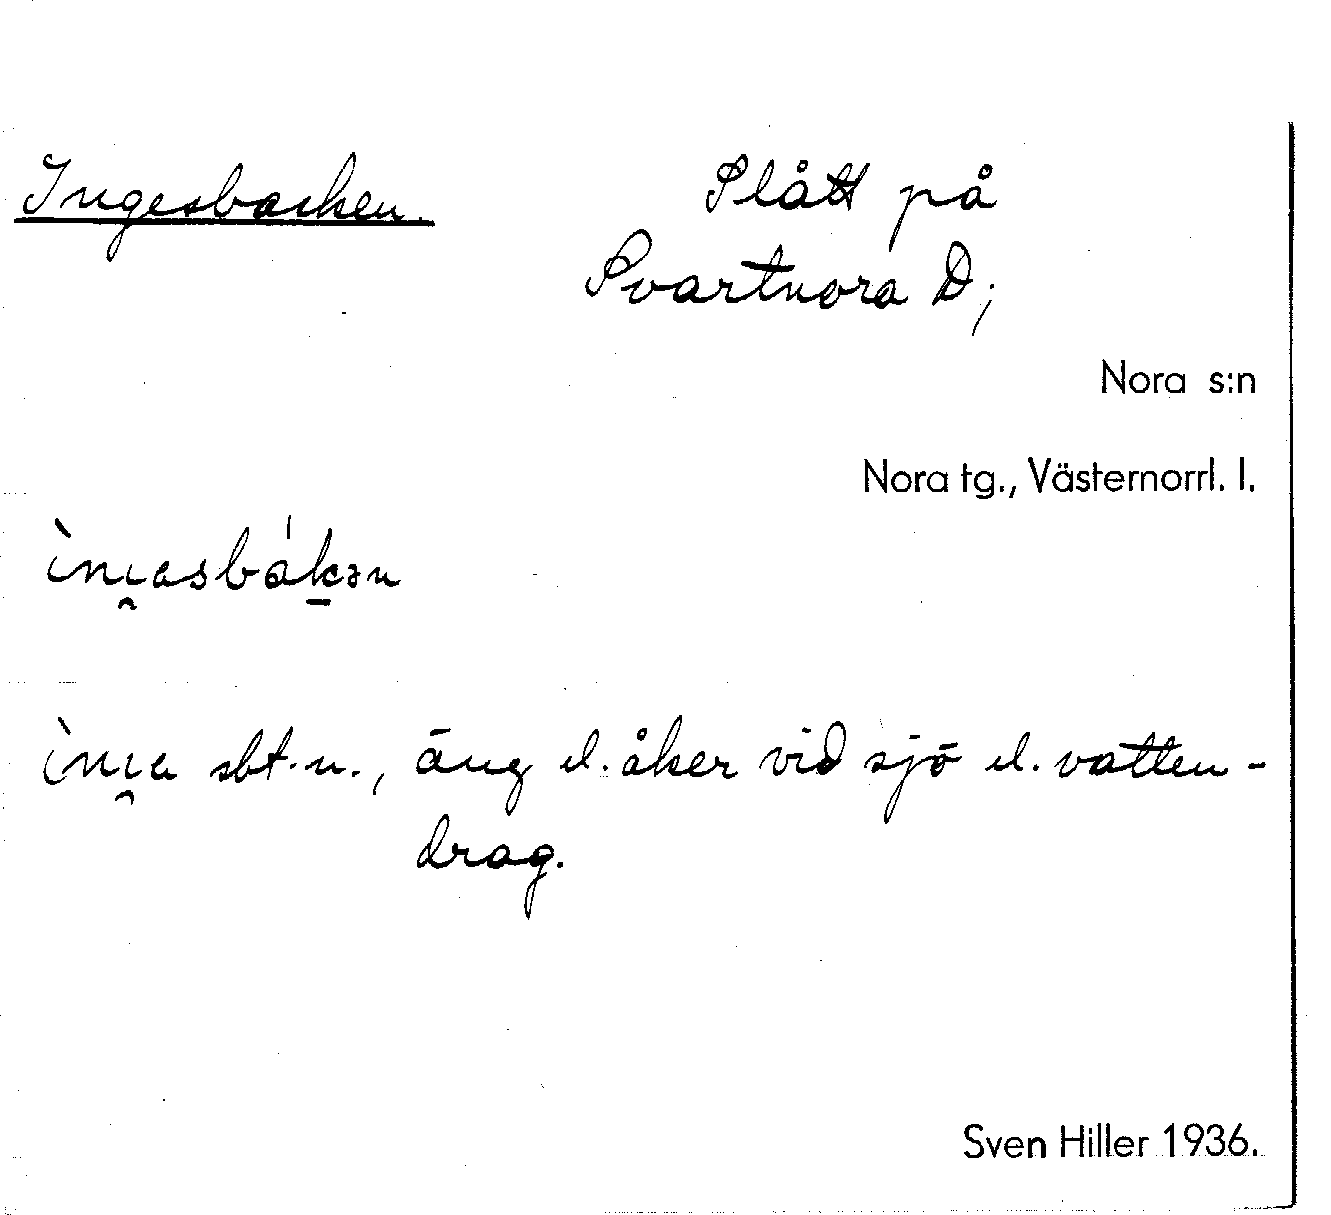 Ingesbacken. Slått på
Svartnora D;
Nora s:n
Nora tg., Västernorrl. l.
sbt. n., äng el. åker vid sjö el. vatten-
drag.
Sven Hiller 1936.